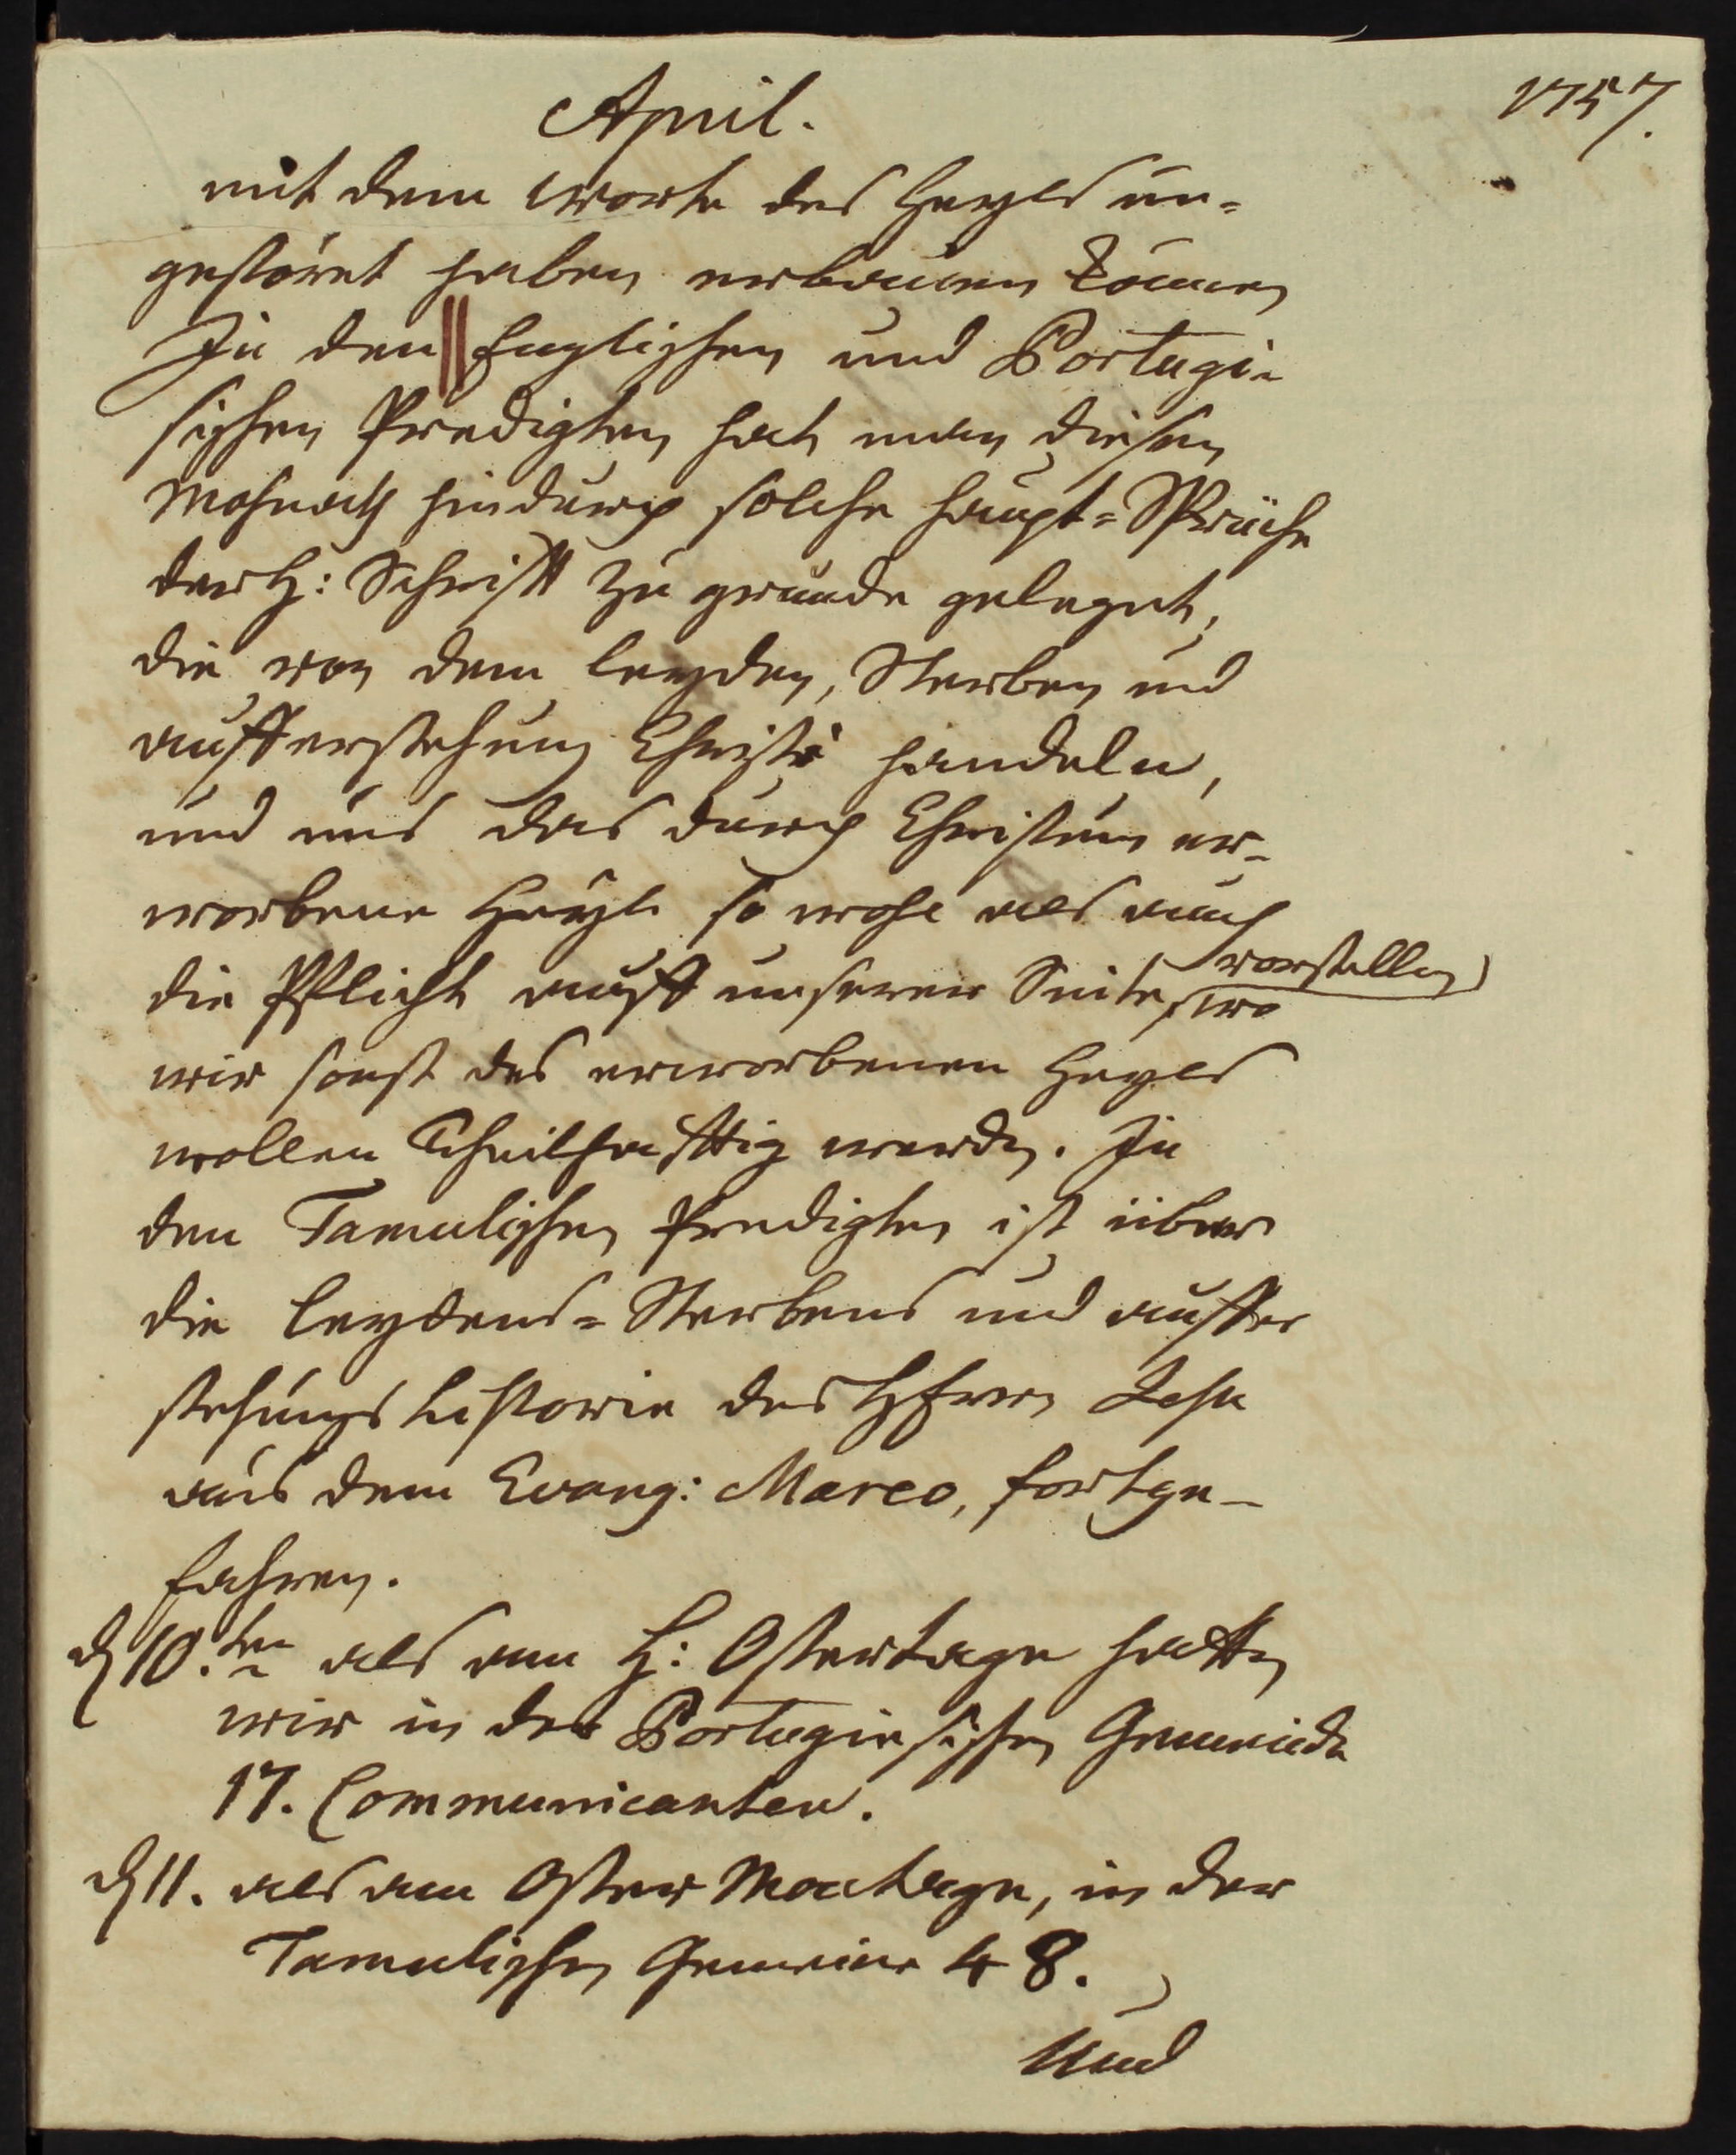 April.
1757.
mit dem Worte des Heyls un=
gestöret haben erbauen können
In den || Englischen und Portugi=
sischen Predigten hat man diesen
Mohnath hindurch solche Haupt=Sprüche
der H: Schrifft zu grunde geleget,
die von dem leyden, Sterben und
aufferstehung Christi handeln,
und uns das durch Christum er=
worbene Heyl so wohl als auch
die Pflicht auff unserer Seite, vorstellen
wo
wir sonst des erworbenen Heyls
wollen theilhafftig werden. In
den Tamulischen Predigten ist über
die leydens=Sterbens und auffer
stehungs historie des HErrn Jesu
aus dem Evang: Marco, fortge=
fahren.
d 10.ten als am H: Ostertage hatten
wir in der Portugiesischen Gemeinde
17. Communicanten.
d 11. als am Oster Montage, in der
Tamulischen Gemeine 48.
Und